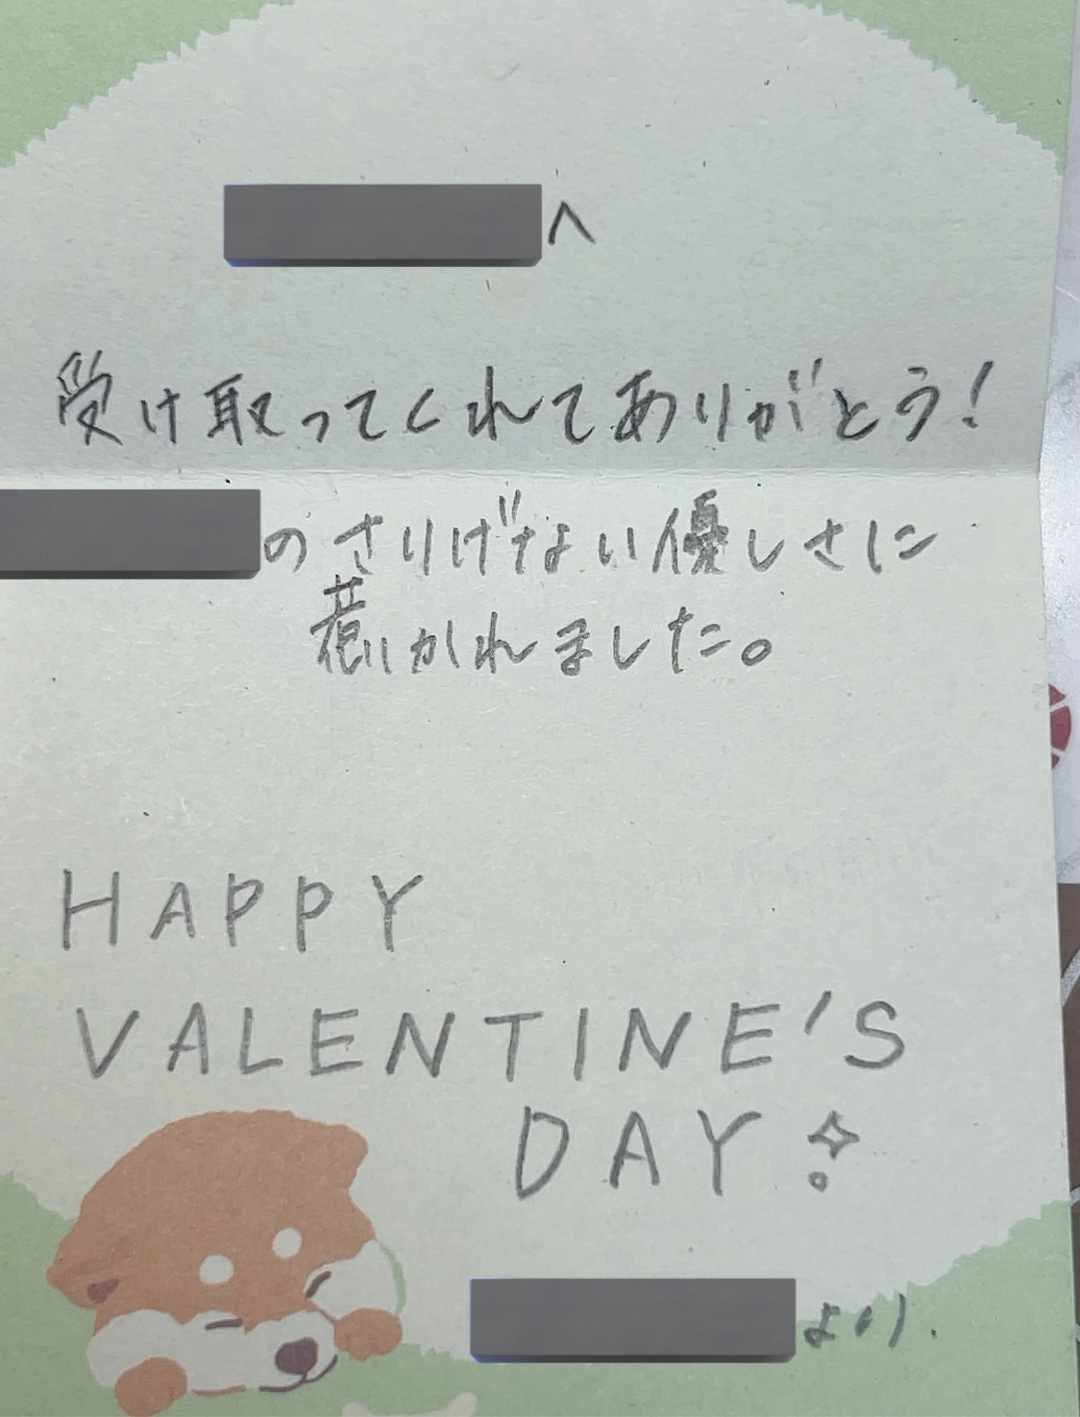 へ
受け取ってくれてありがとう!
のさりげない優しさに
惹かれました。
HAPPY
VALENTINE'S
DAY
より.